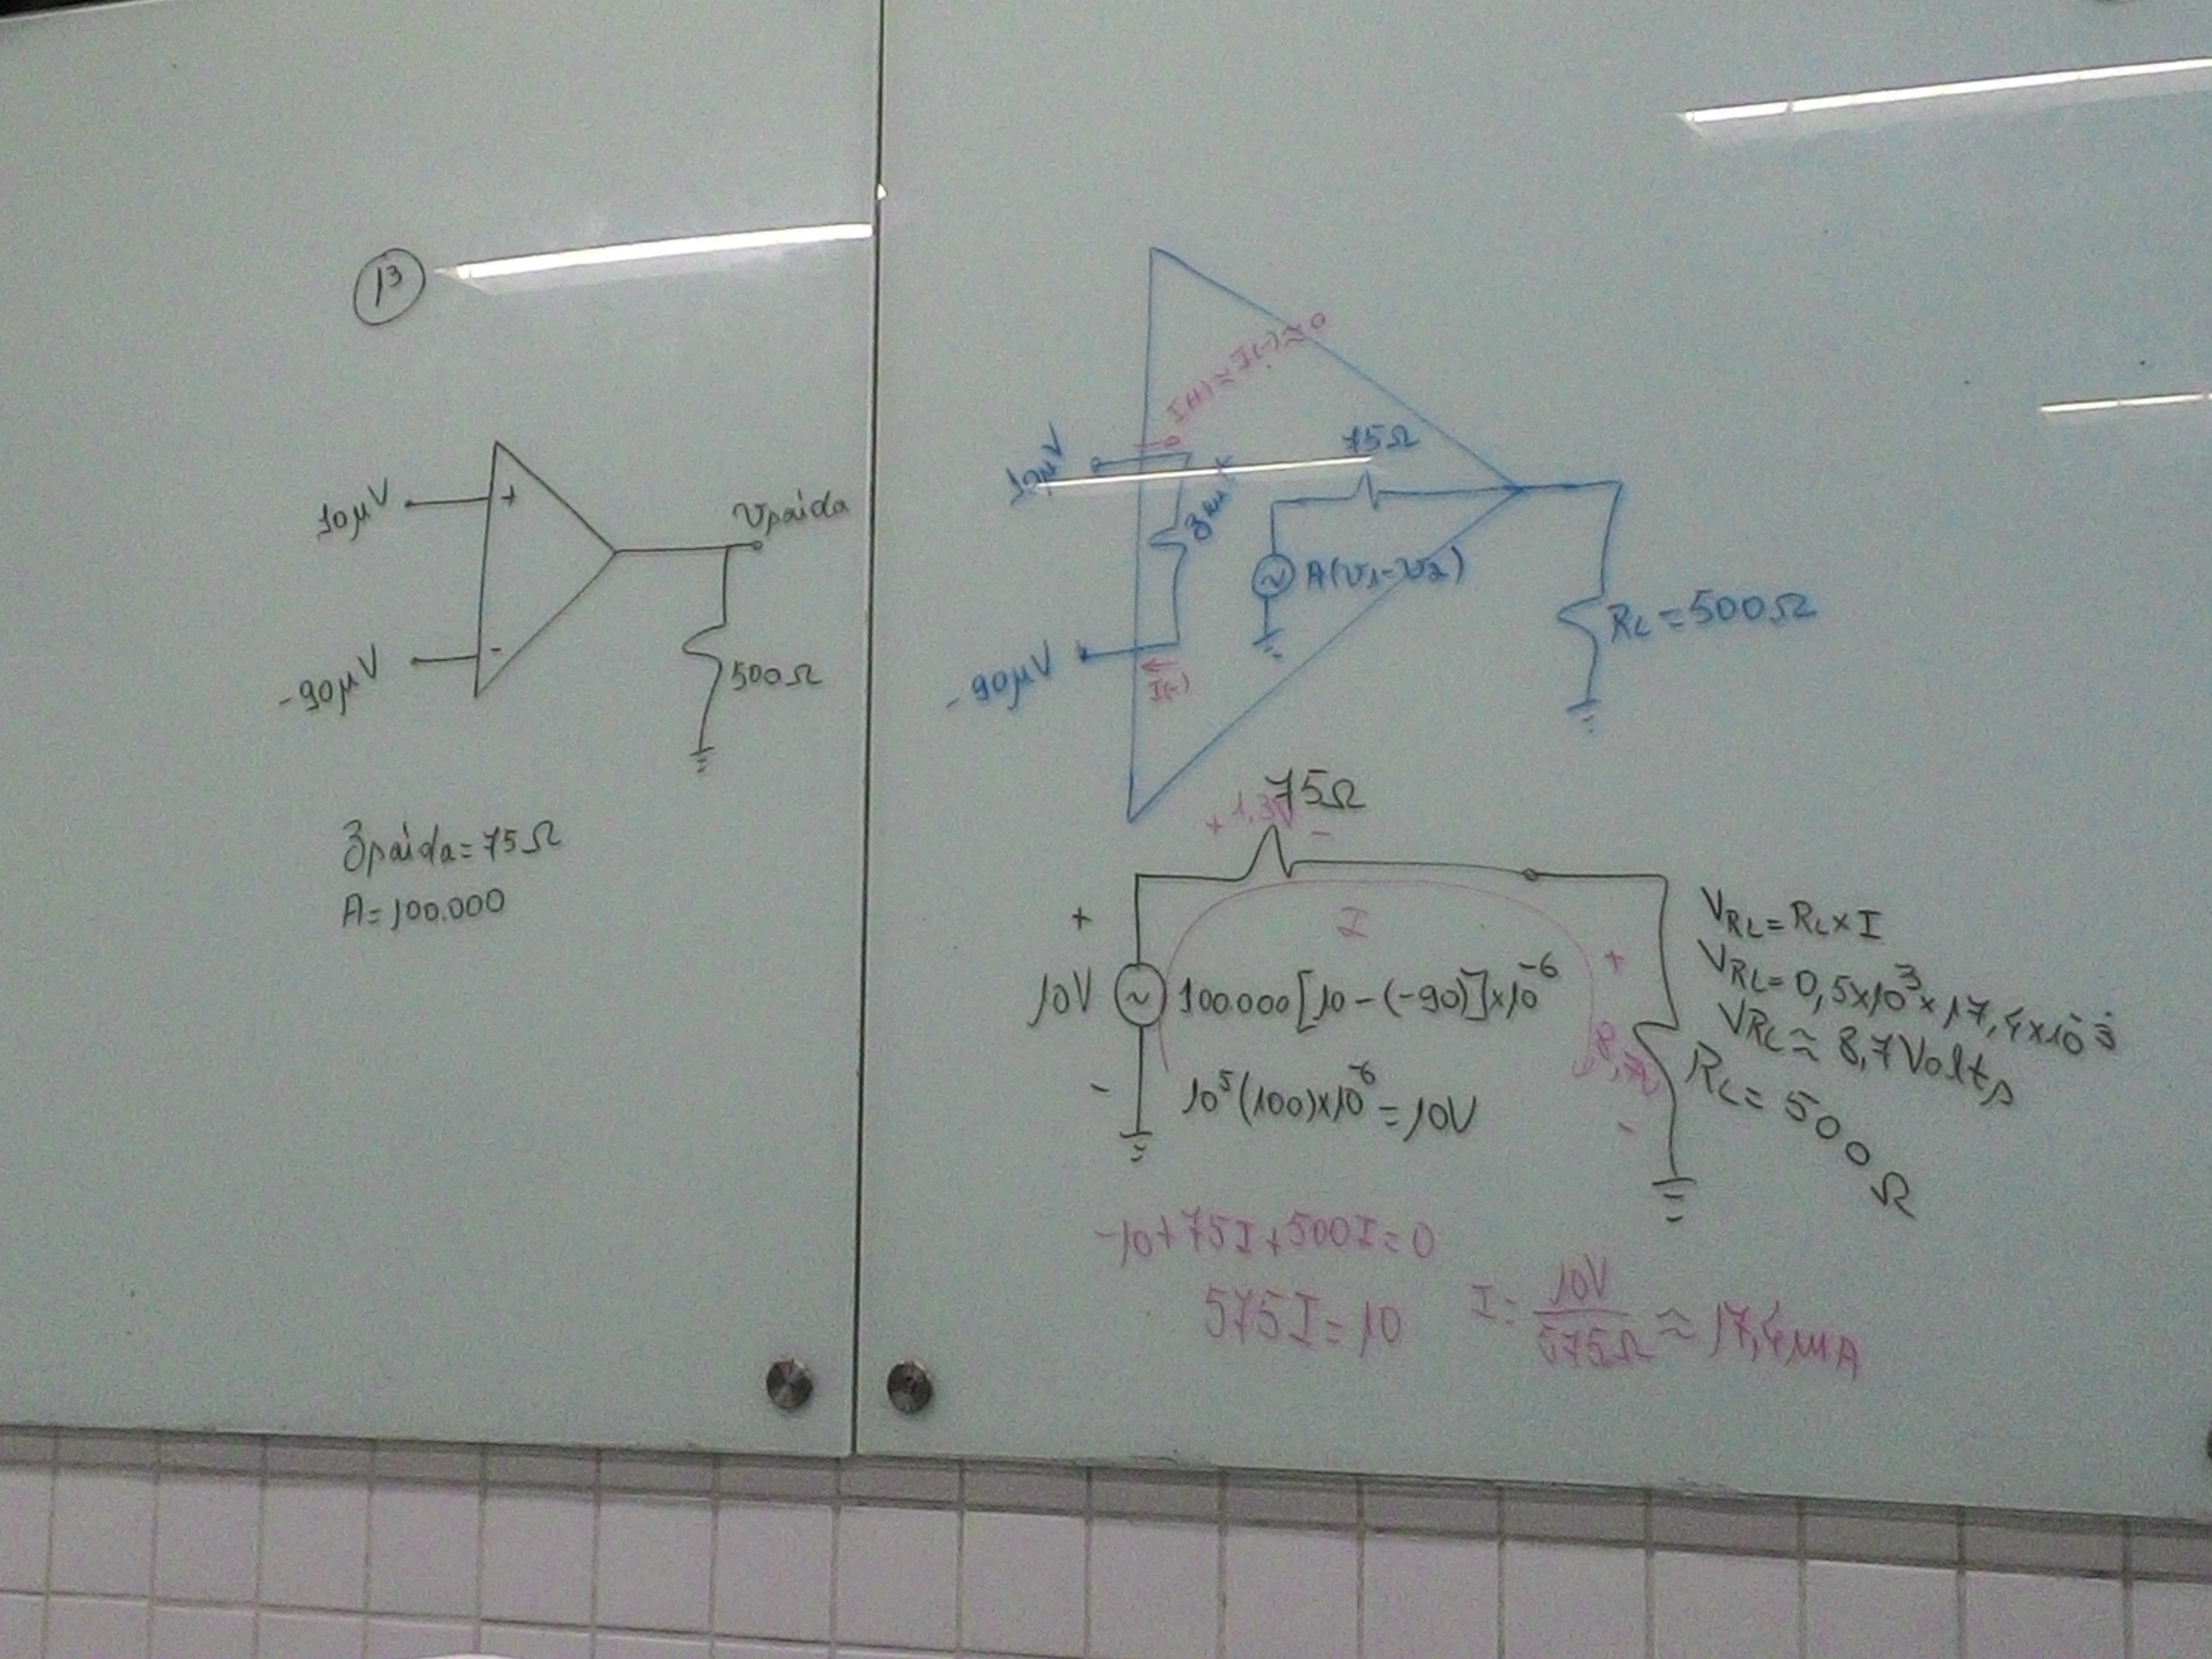 13
10μV
+
vsaída
-90μV
-
500Ω
Zsaída=75Ω
A=100.000
I(+)≈I(-)≈0
10μV
75Ω
A(v1-v2)
-90μV
I(-)
RL=500Ω
75Ω
+ 1,3V -
+
I
10V
100.000[10-(-90)]x10⁻⁶
-
10⁵(100)x10⁻⁶=10V
+
8,7V
-
VRL=RLxI
VRL=0,5x10³x17,4x10⁻³
VRL≈8,7Volts
RL=500Ω
-10+75I+500I=0
575I=10
I=10V/575Ω≈17,4mA